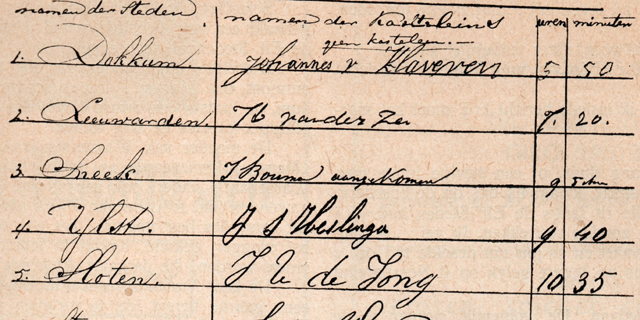 namen der steden namen der Kasteleins uren minuten
geen kastelein
1. Dokkum. Johannes v Klaveren 5 50
2. Leeuwarden. H van der Zee 7. 20.
3 Sneek J Bouma aangekomen 9
4. Ylst. J S Heslinga 9 40
5. Sloten. J de Jong 10 35